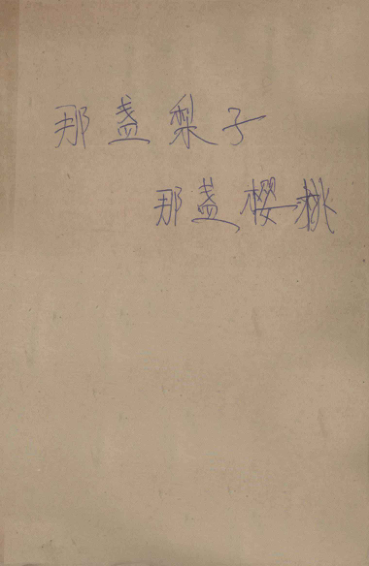 那盏梨子
那盏樱桃